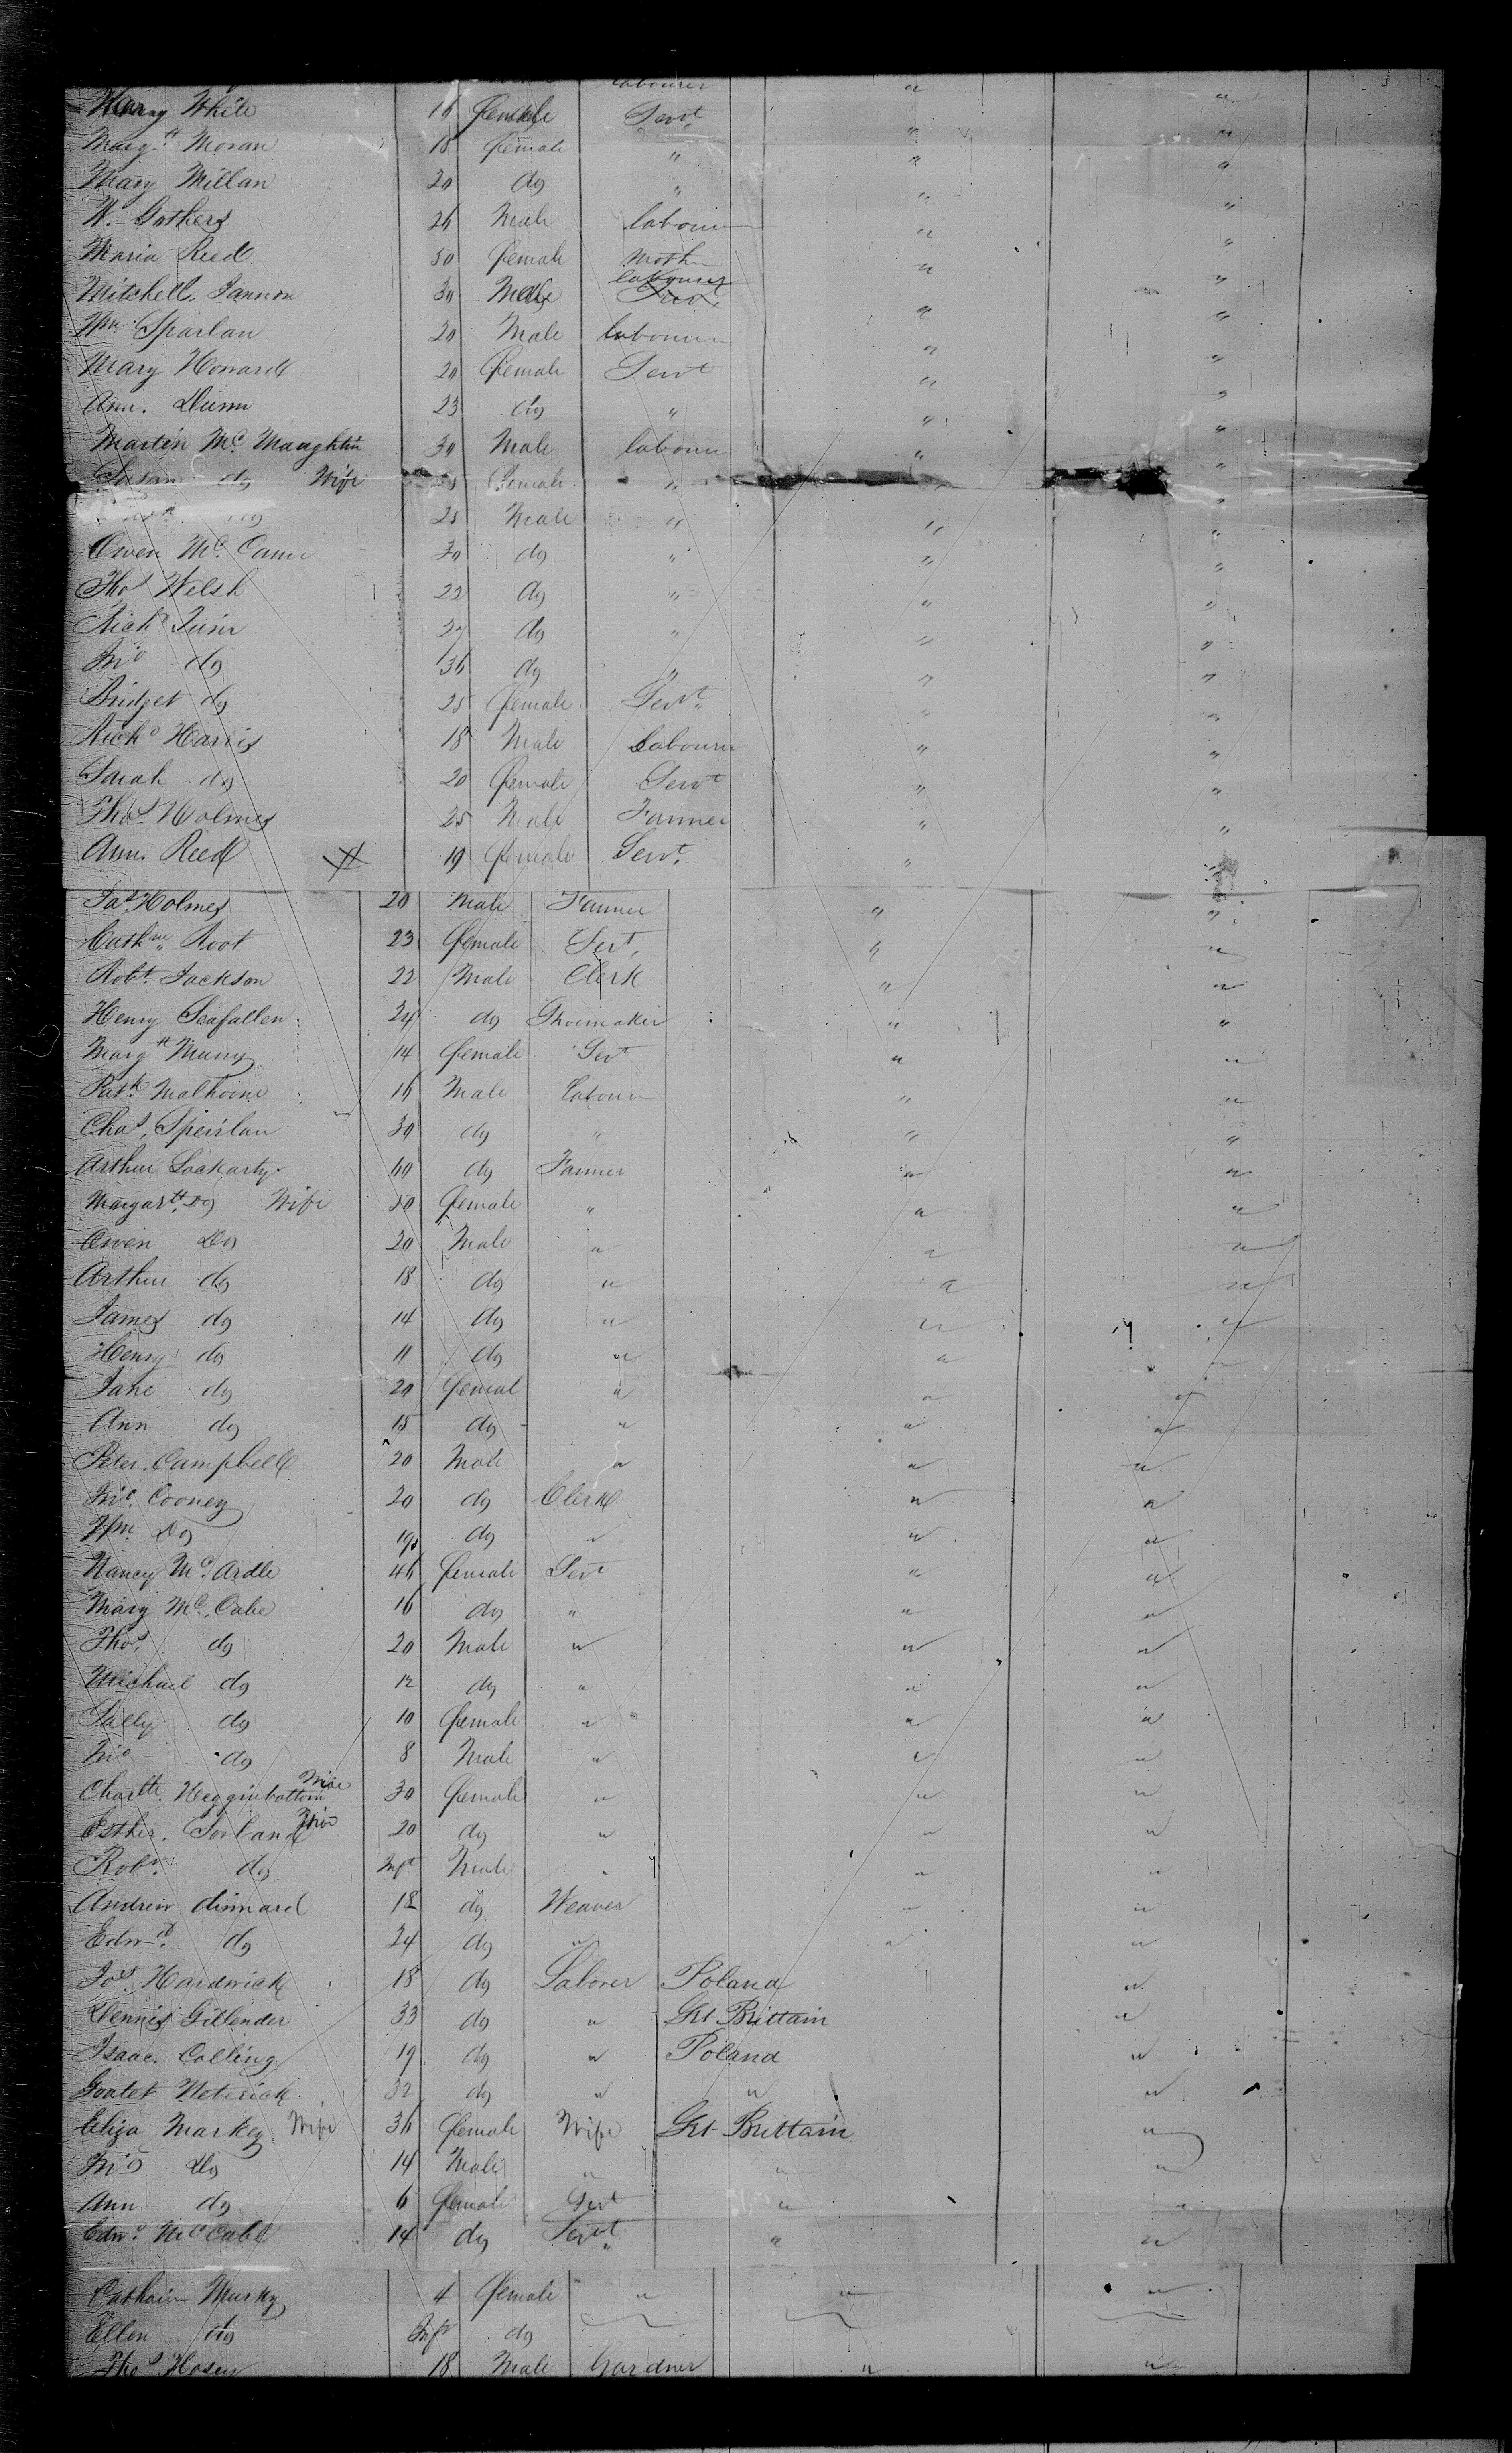 labourer " "
Mary White 16 female Servt " "
Margtt Moran 18 female " " "
Mary Millan 20 do " " "
W. Gothers 26 Male labourer " "
Maria Reed 50 female Mother " "
Mitchell Jannon 30 Male labourer " "
Wm Sparlan 20 Male labourer " "
Mary Howard 20 female Servt " "
Ann. Dunn 23 do " " "
Martin Mc Maughtin 30 Male labourer " "
Susan do Wife 25 female " " "
do 25 Male " " "
Owen Mc Cann 30 do " " "
Thos Welsh 22 do " " "
Richd Quinn do " " "
Jno do 36 do " " "
Bridget do 25 female Servt " "
Richd Harris 18 Male Labourer " "
Sarah do 20 female Servt " "
Thos Holmes 25 Male Farmer " "
Ann. Reed 19 female Servt. " "
Jas Holmes 20 Male Farmer " "
Cathne Root 23 female Servt, " "
Robt. Jackson 22 Male Clerk " "
Henry Seafallen 24 do Shoemaker " "
Margtt Murry 14 female Servt " "
Patk Malhoone 16 Male Labourer " "
Chas. Speirlan 30 do " " "
Arthur Lockarty 60 do Farmer " "
Margartt Do Wife 50 female " " "
Owen Do 20 Male " " "
Arthur do 18 do " " "
James do 14 do " " "
Henry do 11 do " " "
Jane do 20 femal " " "
Ann do 15 do " " "
Peter. Campbell 20 Male " " "
Jno. Cooney 20 do Clerk " "
Wm Do 19 do " " "
Nancy Mc Ardle 46 female Servt " "
Mary Mc. Cabe 16 do " " "
Thos. do 20 Male " " "
Michael do 12 do " " "
Sally do 10 female " " "
Jno do 8 Male " " "
Chartte. Hegginbottom 30 female " " "
Esther. 20 do " " "
Robt do Inft Male " " "
Andrew dinnard 18 do Weaver " "
Edwd. do 24 do " " "
Jos Hardwick 18 do Laborer Poland "
Dennis Gillender 33 do " Gt Brittain "
Isaac. Colling 19 do " Poland "
Goatet Neterick 32 do " " "
Eliza Markey Wife 36 female Wife Gt Brittain "
Jno Do 14 Male " " "
Ann do 6 female Servt " "
Edwd McCabe 14 do Servt " "
Catharine Murky 4 female " " "
Ellen do Inft do
Thos Hosey 18 Male Gardner " "